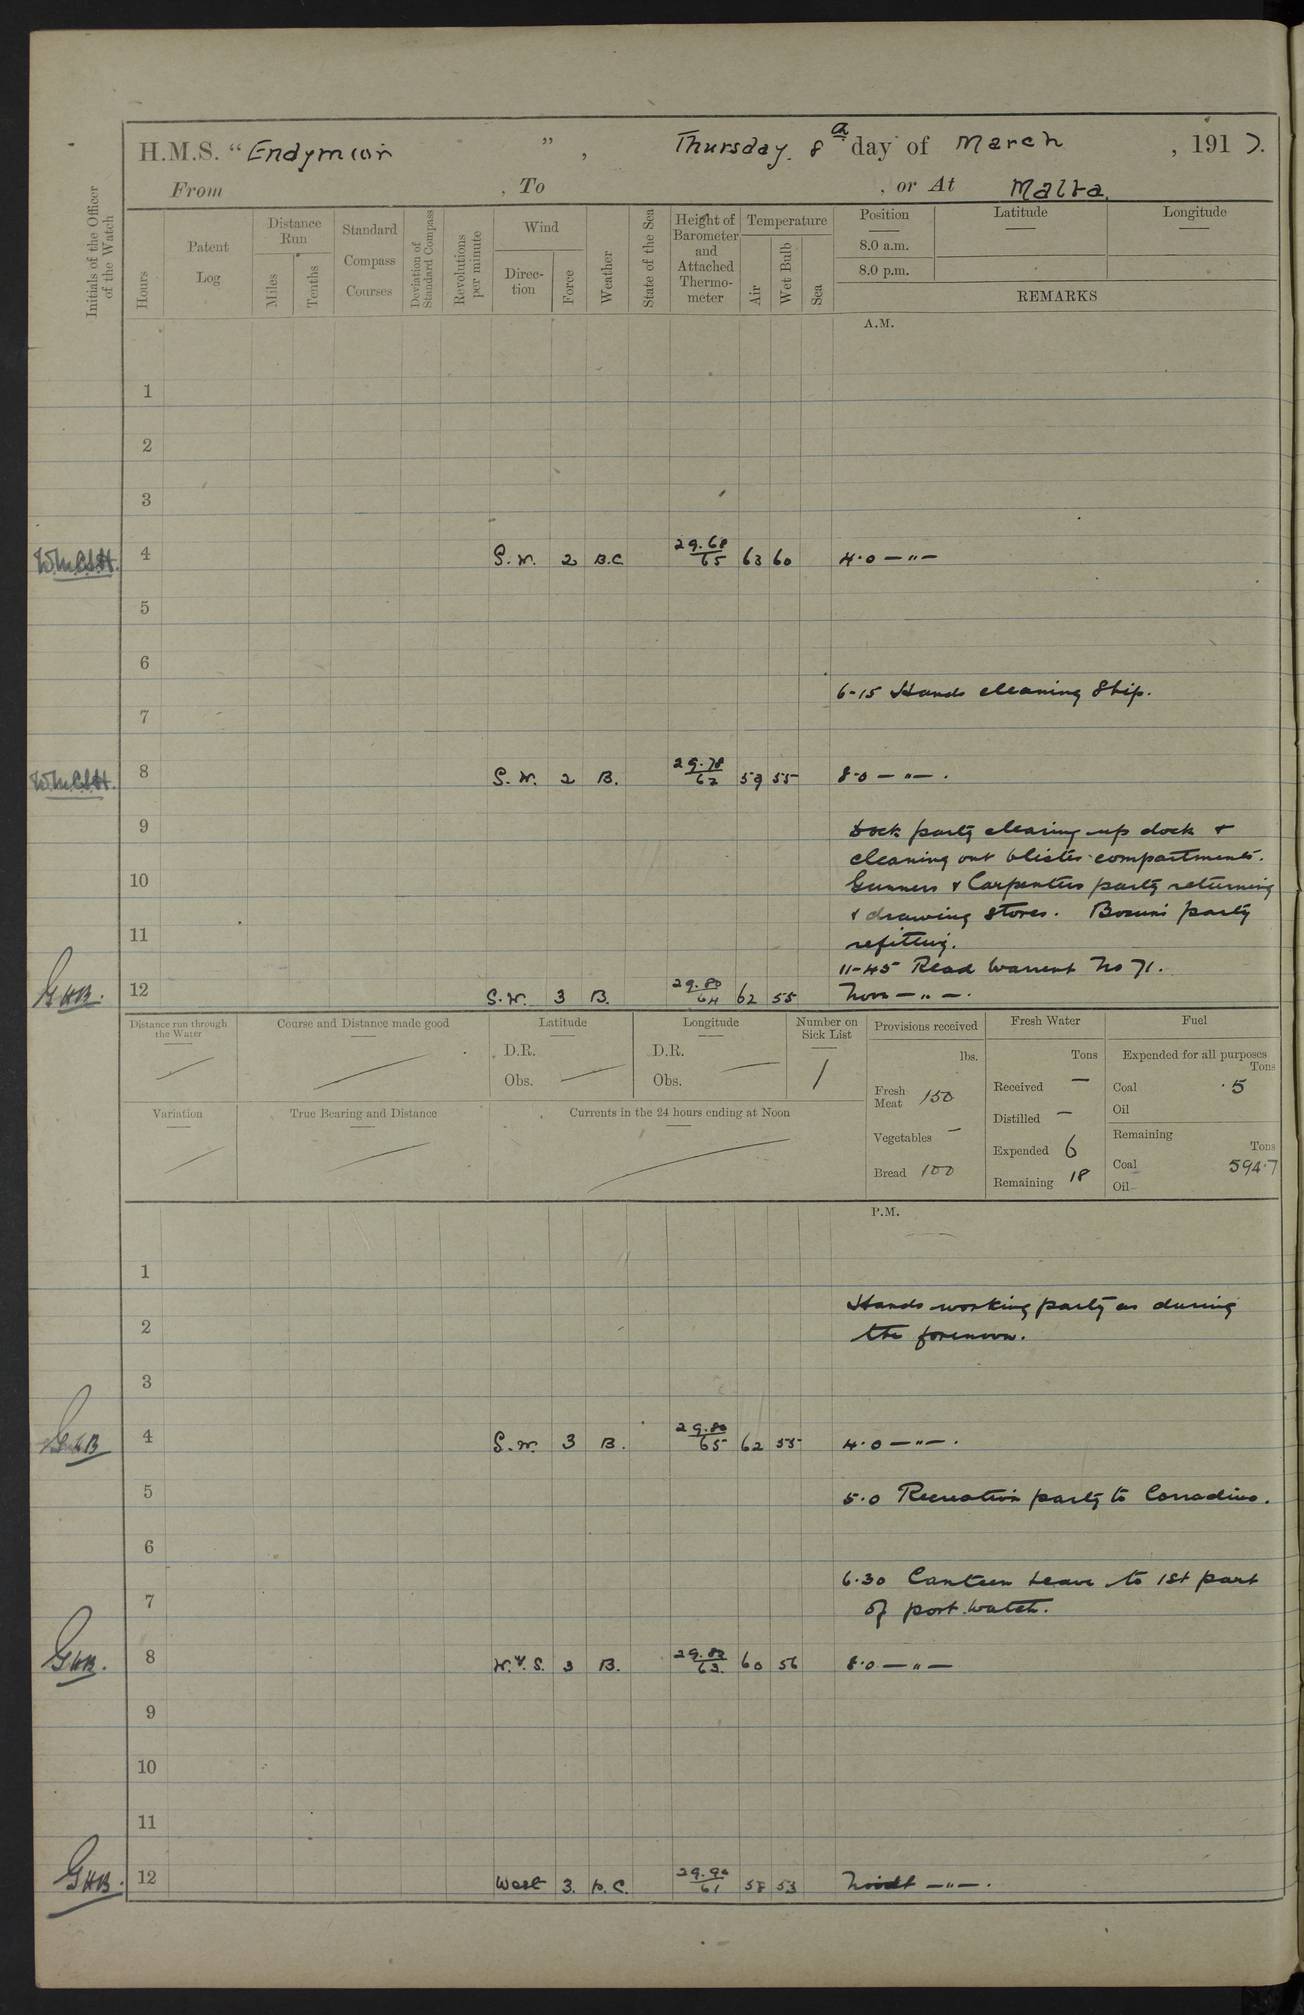 H.M.S. "Endymion", Thursday. 8th day of March, 1917.
From , To , or At Malta.
Initials of the Officer of the Watch
Hours
Patent Log
Distance Run
Miles
Tenths
Standard Compass Courses
Deviation of Standard Compass
Revolutions per minute
Wind
Direction
Force
Weather
State of the Sea
Height of Barometer and Attached Thermometer
Temperature
Air
Wet Bulb
Sea
Position
8.0 a.m.
8.0 p.m.
Latitude
Longitude
REMARKS
A.M.
1
2
3
4 S.W. 2 B.C. 29.68/65 63 60 4.0 — " —
5
6
6-15 Hands cleaning Ship.
7
8 S.W. 2 B. 29.78/62 59 55 8-0 — " — .
9 Dock party clearing up dock &
cleaning out blister compartments.
10 Gunners & Carpenters party returning
& drawing stores. Bosuns party
11 refitting.
11-45 Read Warrant No 71.
G H B. 12 S.W. 3 B. 29.80/64 62 55 Noon — " — .
Distance run through the Water
Course and Distance made good
Latitude
D.R.
Obs.
Longitude
D.R.
Obs.
Number on Sick List
1
Provisions received
lbs.
Fresh Meat 150
Vegetables —
Bread 100
Fresh Water
Tons
Received —
Distilled —
Expended 6
Remaining 18
Fuel
Expended for all purposes
Tons
Coal .5
Oil
Remaining
Tons
Coal 594.7
Oil
Variation
True Bearing and Distance
Currents in the 24 hours ending at Noon
P.M.
1
Hands working party as during
2 the forenoon.
3
G H B 4 S.W. 3 B. 29.80/65 62 55 4.0 — " — .
5 5.0 Recreation party to Corradino.
6
6.30 Canteen Leave to 1st part
7 of port watch.
G H B. 8 W.y.S. 3 B. 29.82/63. 60 56 8.0 — " —
9
10
11
G H B. 12 West 3. B.C. 29.90/61 58 53 Midt — " — .